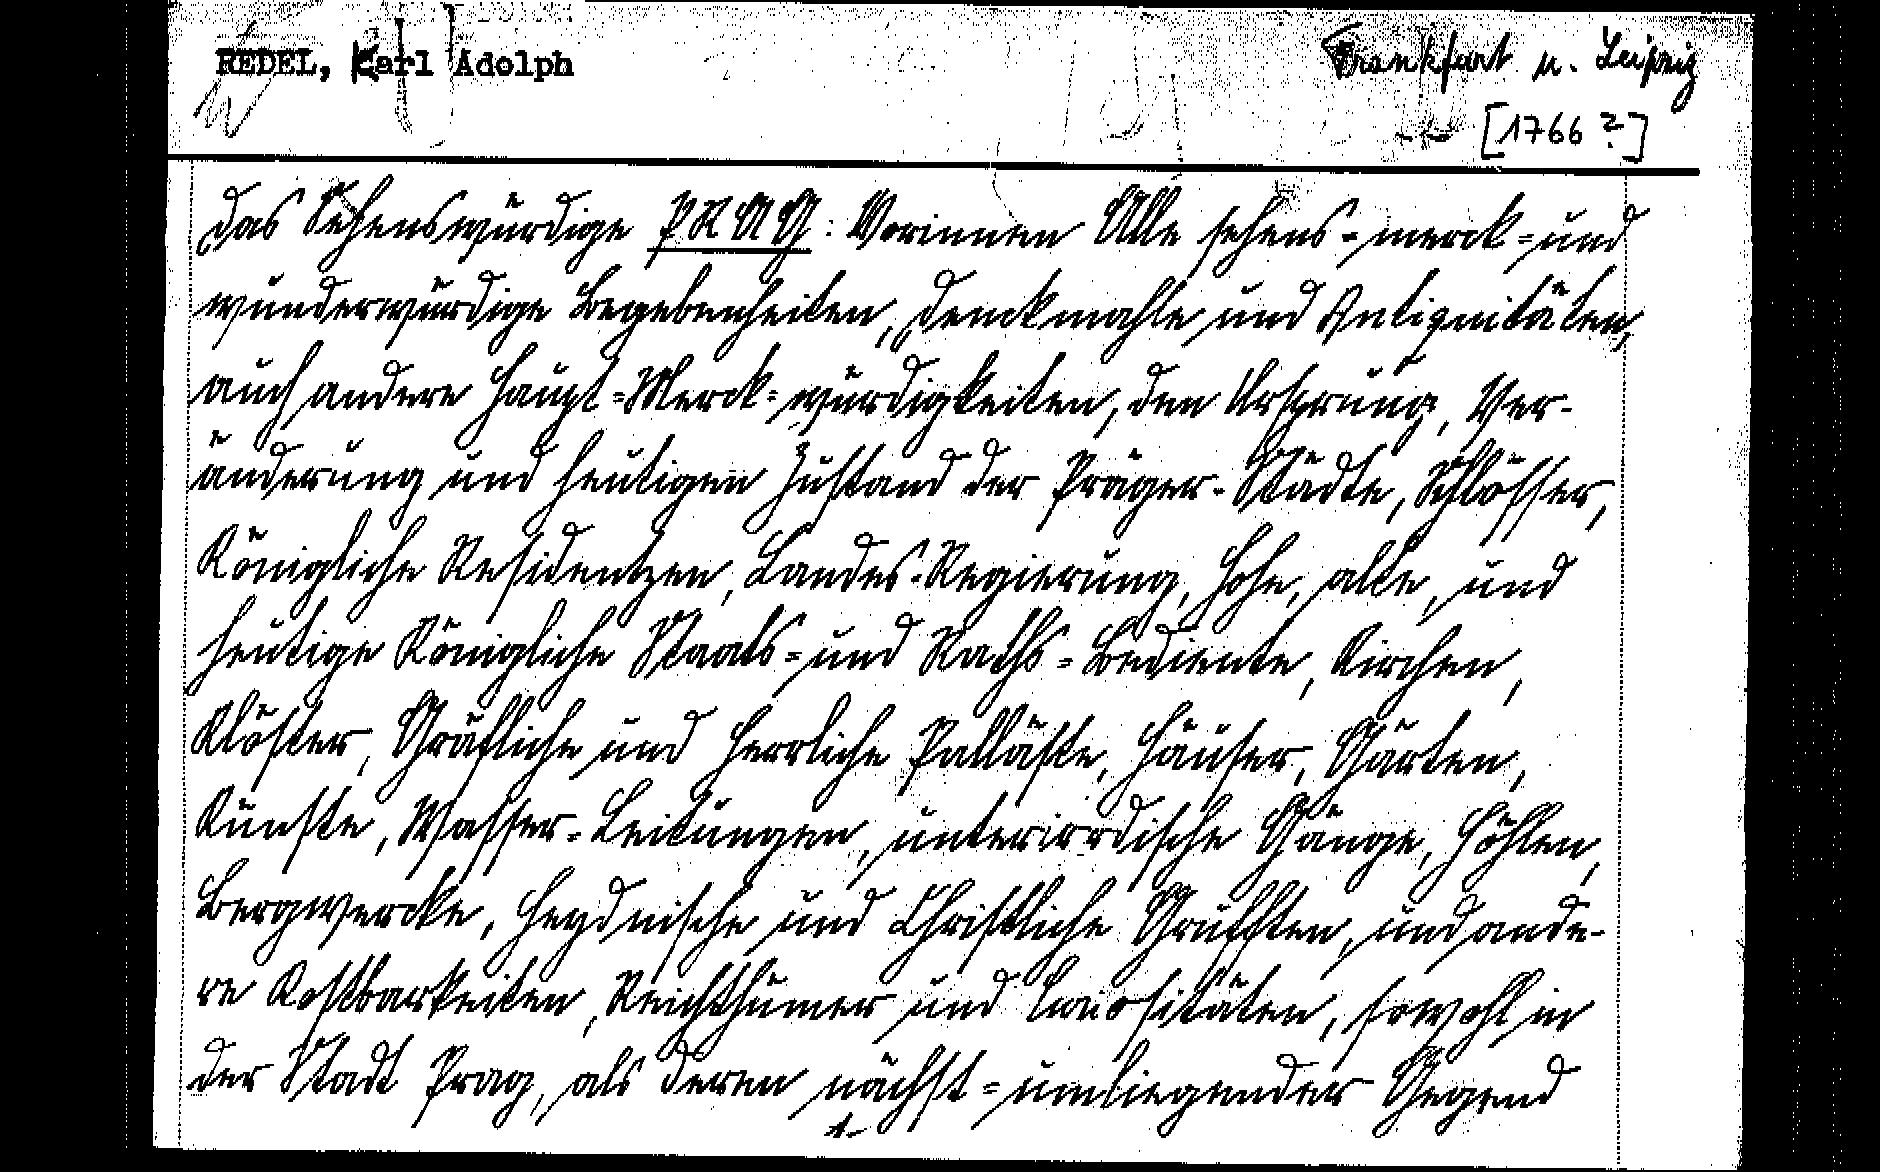 REDEL, Karl Adolph
Frankfurt u. Leipzig
[1766?]
das Sehenswürdige PRAG: Worinnen Alle sehens-merck=und
wunderwürdige Begebenheiten, Denckmahle und Antiquitäten,
auch andere Haupt=Merck=würdigkeiten, den Ursprung, Ver-
änderung und heutigen Zustand der Präger-Städte, Schlösser,
Königliche Residentzen, Landes-Regierung, hohe, alte, und
heutige Königliche Staats=und Raths=Bediente, Kirchen,
Klöster, Gräfliche und Herrliche Palläste, Häuser, Gärten,
Künste, Wasser=Leitungen, unterirrdische Gänge, Höhlen,
Bergwercke, Heydnische und Christliche Grufften, und ande-
re Kostbarkeiten, Reichthümer und Curiositäten, sowohl in
der Stadt Prag, als deren nächst=umliegender Gegend